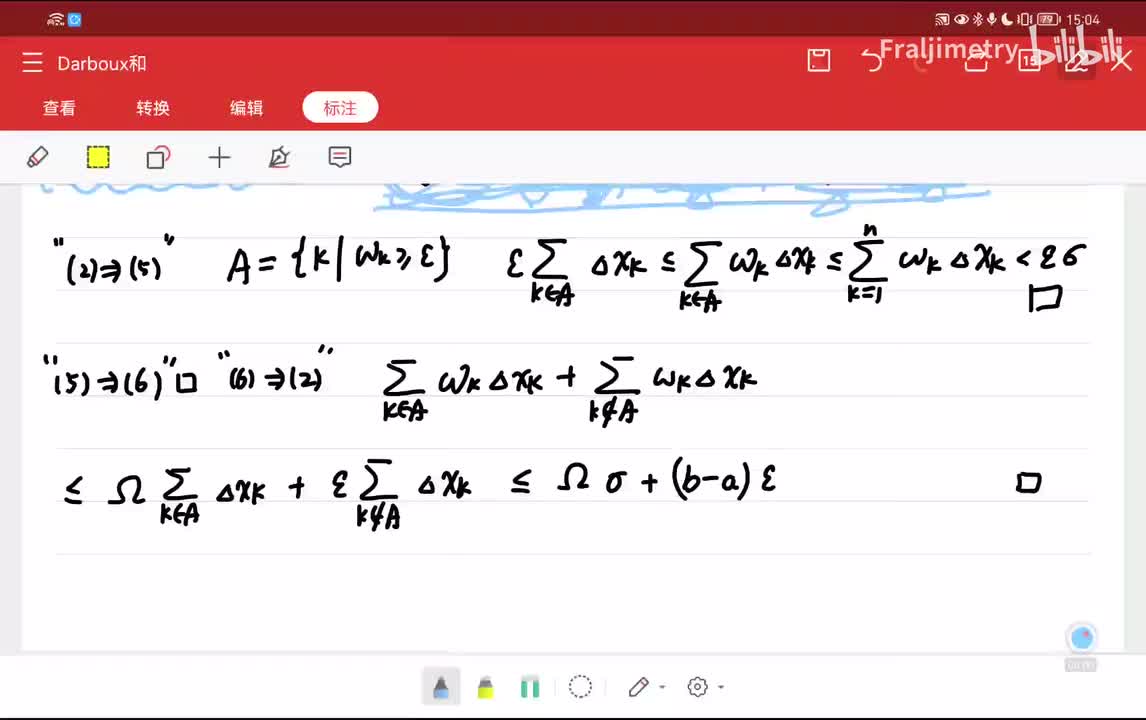 15:04
Darboux和
Fraljimetry bilibili
查看 转换 编辑 标注
"(2)⇒(5)" A={k|ωk≥ε} ε∑k∈A Δxk ≤ ∑k∈A ωkΔxk ≤ ∑k=1n ωkΔxk < εσ □
"(5)⇒(6)" □ "(6)⇒(2)" ∑k∈A ωkΔxk + ∑k∉A ωkΔxk
≤ Ω∑k∈A Δxk + ε∑k∉A Δxk ≤ Ωσ+(b-a)ε □